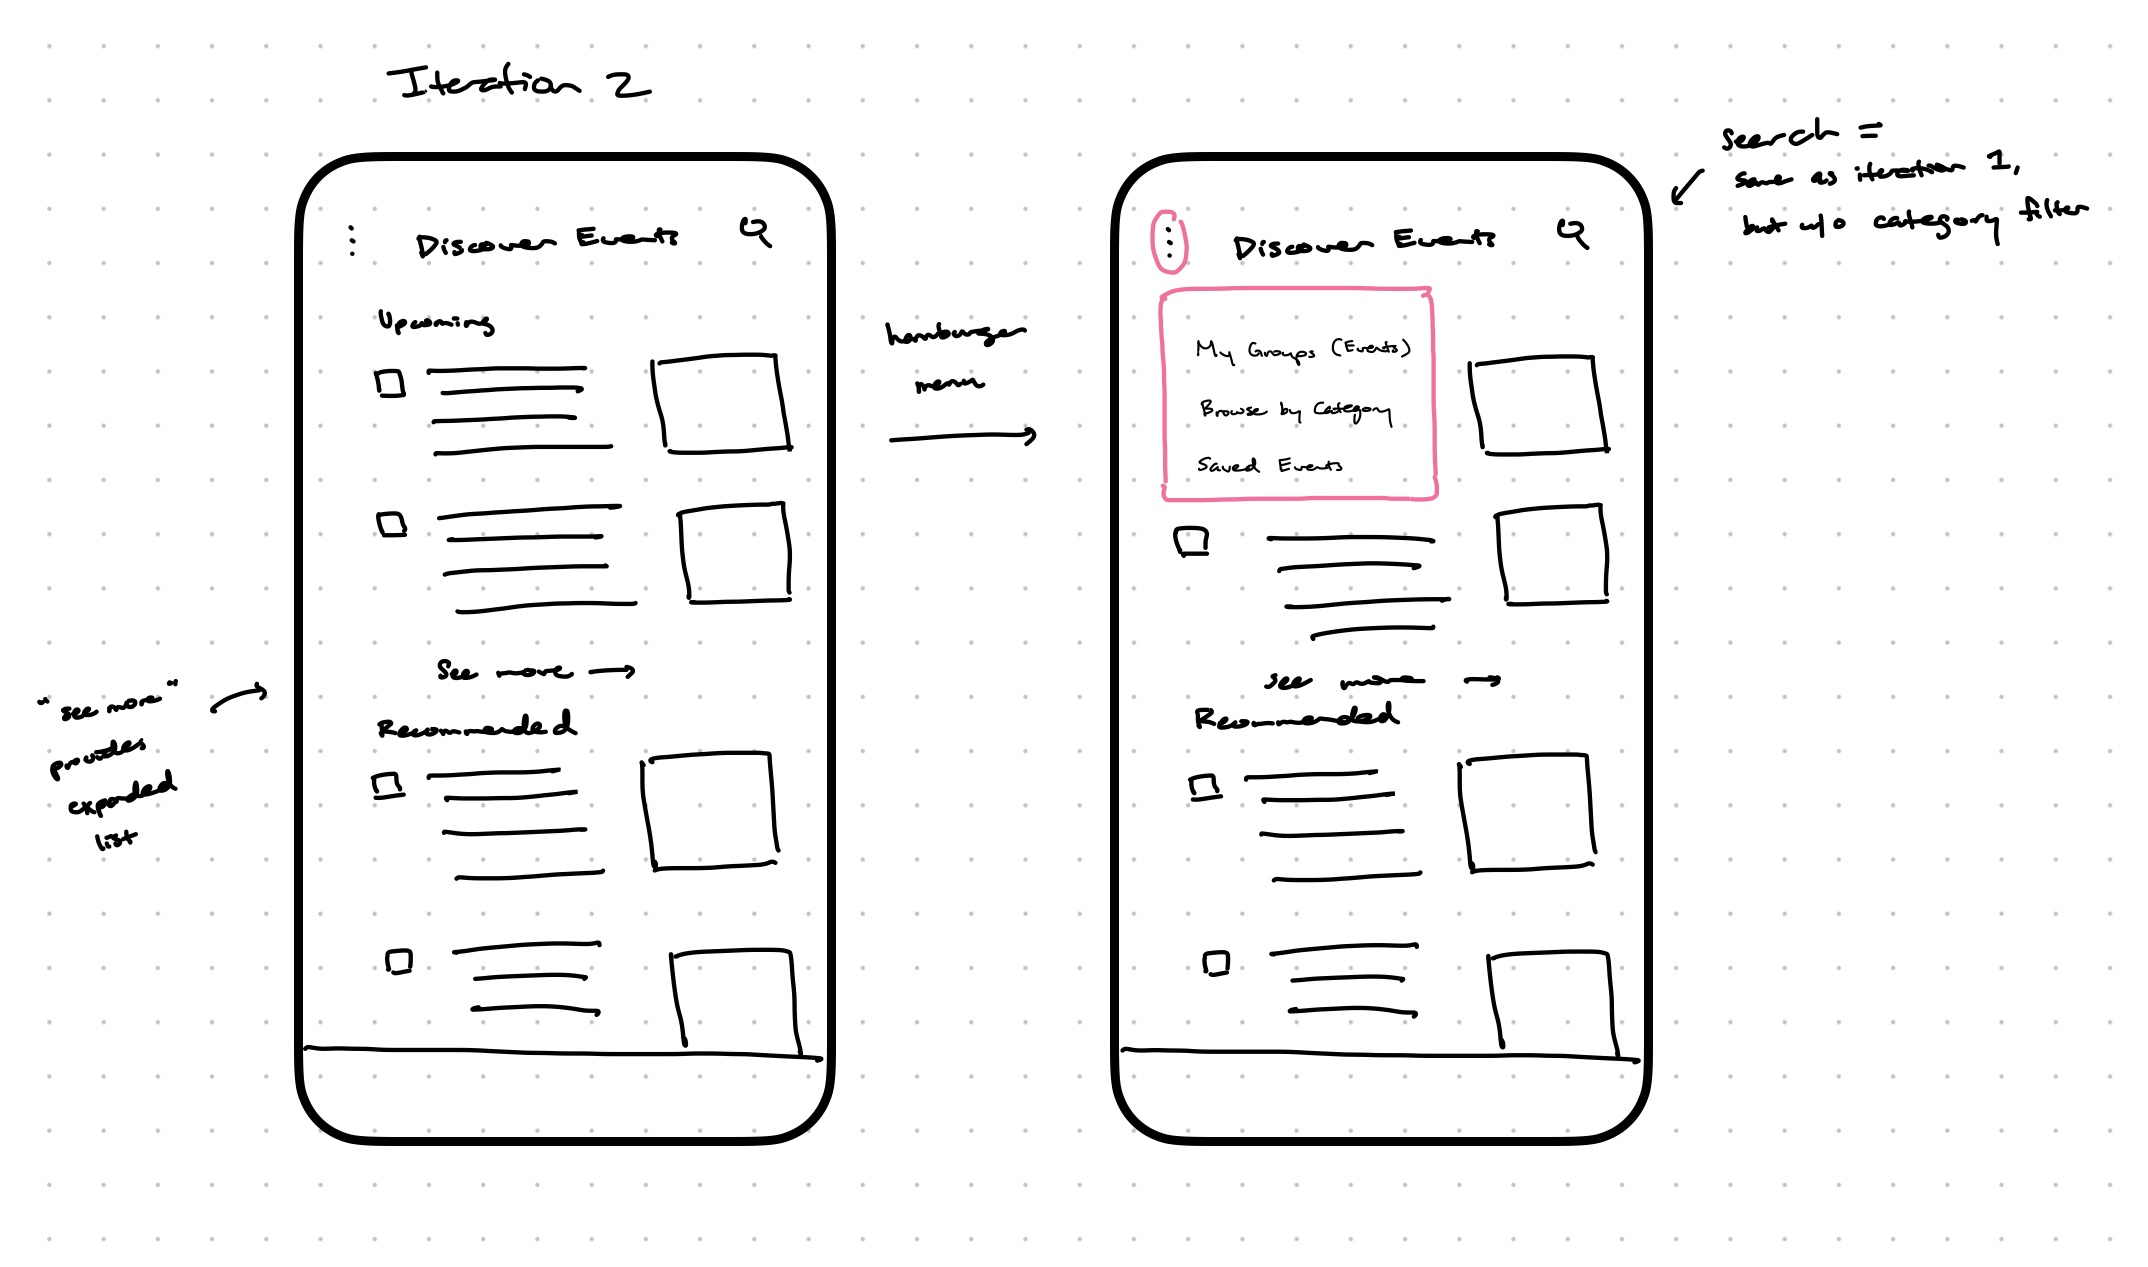 Iteration 2
Discover Events
Upcoming
See more →
Recommended
"see more"
provides
expanded
list
hamburger
menu
Discover Events
My Groups (Events)
Browse by Category
Saved Events
see more →
Recommended
search =
same as iteration 1,
but w/o category filter